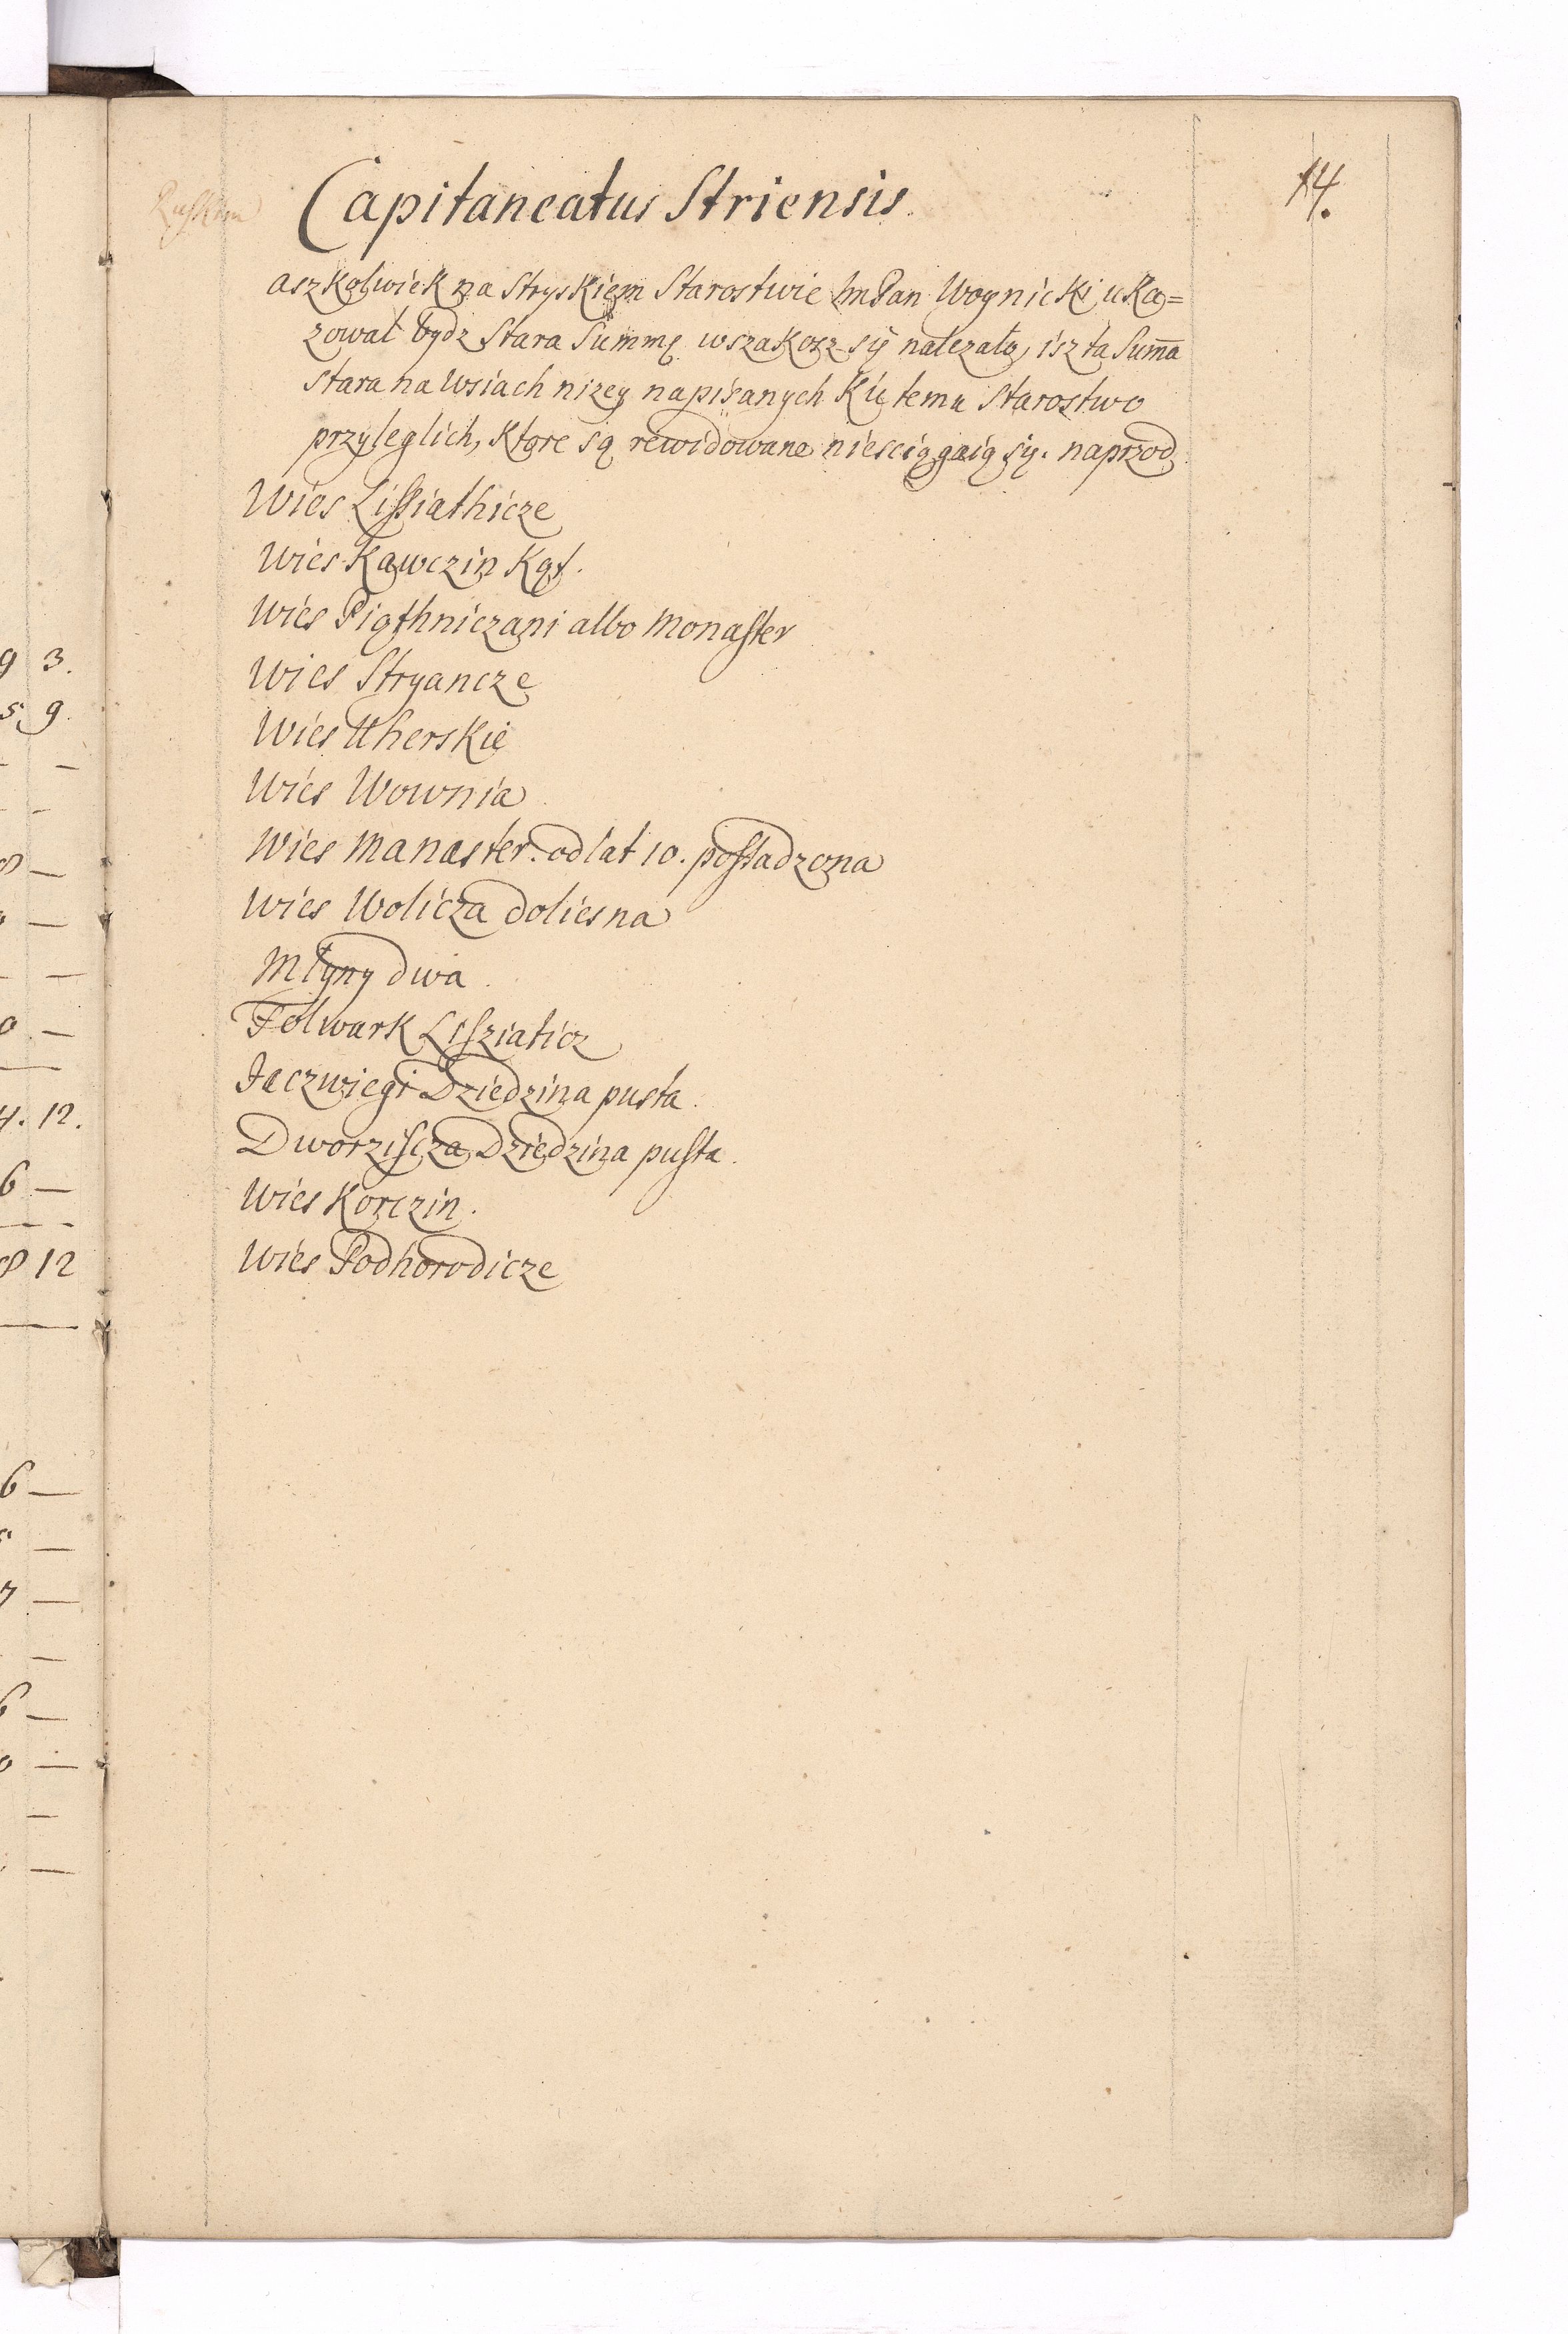 14.
Capitaneatus Striensis.
aszkolwiek na Stryskiem Starostwie ImPan Woynicki uka=
zował bydz Stara Summę wszakosz się nalezało, isz ta Sum̄a
stara na Wsiach nizey napisanych Ku temu Starostwo
przyleglich, Ktore są rewidowane niesciągaią się. naprzod
Wies Lissiathicze
Wies Kawczin Kąt.
Wies Piąthniczani albo Monaster
Wies Stryancze
Wies Uherskie
Wies Wownia
Wies Manaster. od lat 10. possadzona
Wies Wolicza doliesna
Młyny dwa
Folwark Lisziaticz
Jaczwiegi Dziedzina pusta.
Dworziscza Dziedzina pusta.
Wies Korczin.
Wies Podhorodicze
9 3.
5 9.
4. 12.
6 —
8 12
6 —